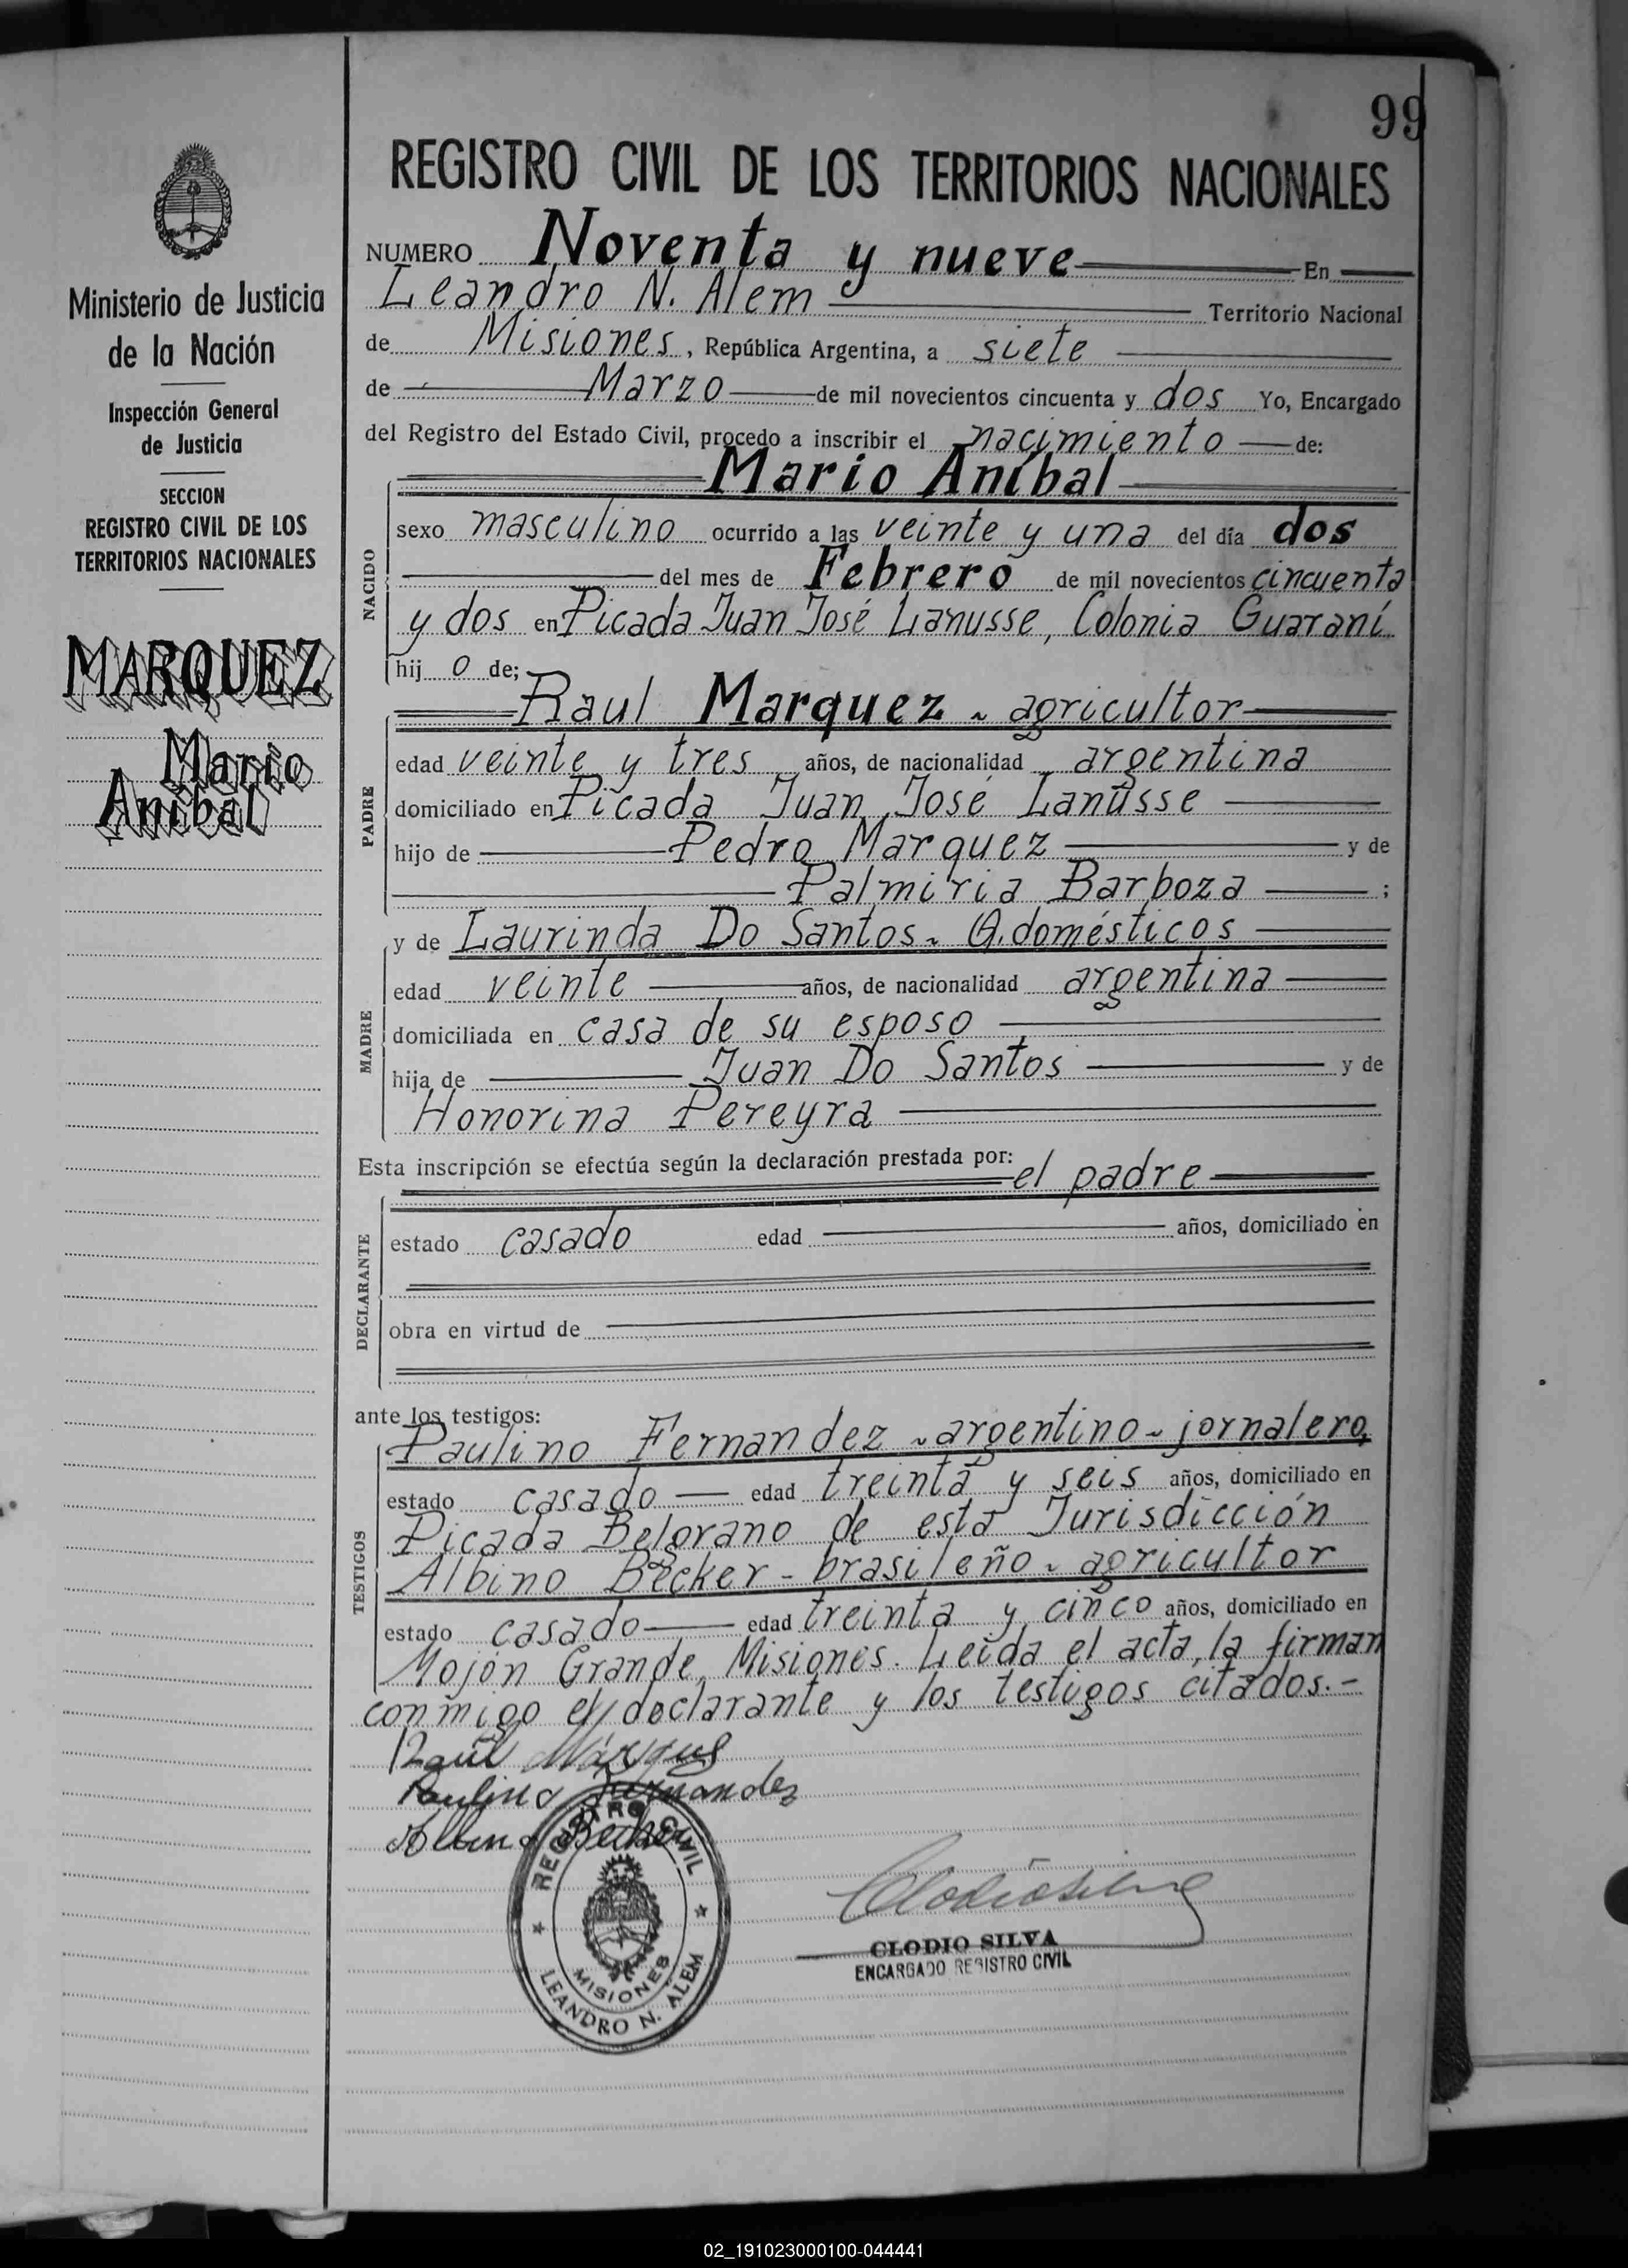 99
REGISTRO CIVIL DE LOS TERRITORIOS NACIONALES
NUMERO Noventa y nueve En
Leandro N. Alem Territorio Nacional
de Misiones, República Argentina, a siete
de Marzo de mil novecientos cincuenta y dos Yo, Encargado
del Registro del Estado Civil, procedo a inscribir el nacimiento de:
Mario Aníbal
sexo masculino ocurrido a las veinte y una del día dos
del mes de Febrero de mil novecientos cincuenta
y dos en Picada Juan José Lanusse, Colonia Guaraní
hij o de;
Raul Marquez - agricultor
edad veinte y tres años, de nacionalidad argentina
domiciliado en Picada Juan José Lanusse
hijo de Pedro Marquez y de
Palmiria Barboza ;
y de Laurinda Do Santos - Q. domésticos
edad veinte años, de nacionalidad argentina
domiciliada en casa de su esposo
hija de Juan Do Santos y de
Honorina Pereyra
Esta inscripción se efectúa según la declaración prestada por: el padre
estado casado edad años, domiciliado en
obra en virtud de
ante los testigos:
Paulino Fernandez - argentino - jornalero,
estado casado edad treinta y seis años, domiciliado en
Picada Belgrano de esta Jurisdicción
Albino Becker - brasileño - agricultor
estado casado edad treinta y cinco años, domiciliado en
Mojón Grande, Misiones. Leída el acta, la firman
conmigo el declarante y los testigos citados.-
Raúl Márquez
Paulino Fernandez
Albino Becker
REGISTRO CIVIL
MISIONES
LEANDRO N. ALEM
CLODIO SILVA
ENCARGADO REGISTRO CIVIL
NACIDO
PADRE
MADRE
DECLARANTE
TESTIGOS
Ministerio de Justicia
de la Nación
Inspección General
de Justicia
SECCION
REGISTRO CIVIL DE LOS
TERRITORIOS NACIONALES
MARQUEZ
Mario
Aníbal
02_191023000100-044441